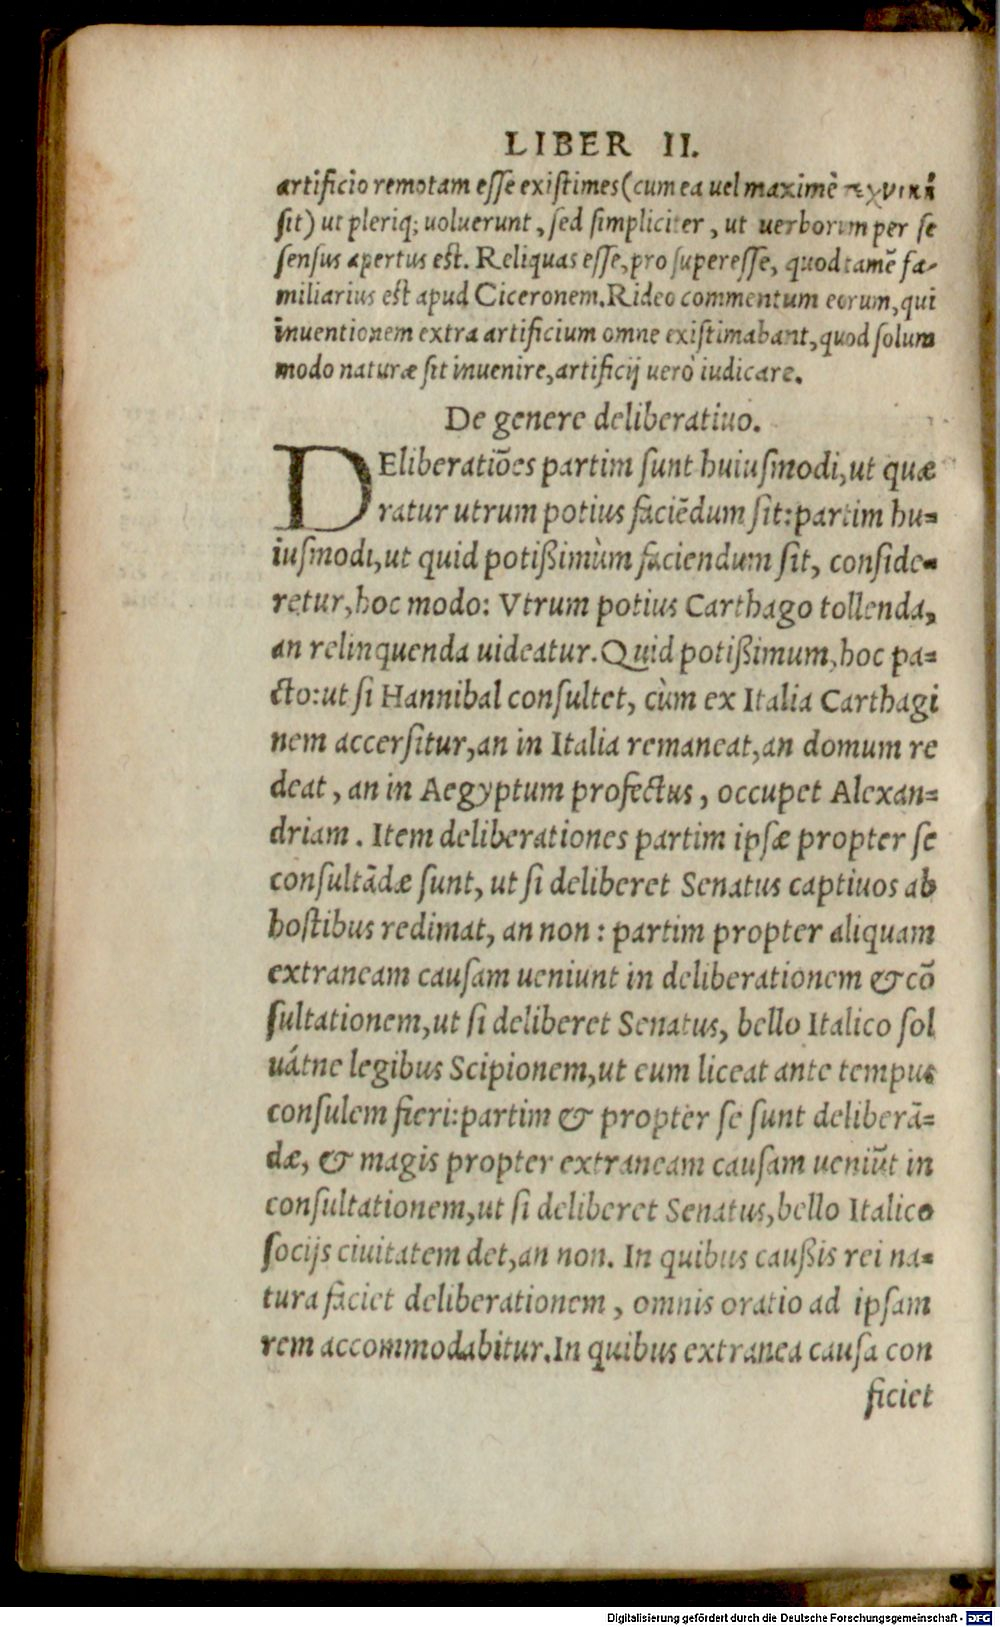 LIBER II.
artificio remotam esse existimes (cum ea uel maximè τεχνικὴ
sit) ut pleriq; uoluerunt, sed simpliciter, ut uerborum per se
sensus apertus est. Reliquas esse, pro superesse, quod tamē fa-
miliarius est apud Ciceronem. Rideo commentum eorum, qui
inuentionem extra artificium omne existimabant, quod solum
modo naturæ sit inuenire, artificij uerò iudicare.
De genere deliberatiuo.
DEliberatiōes partim sunt huiusmodi, ut quæ
ratur utrum potius faciēdum sit: partim hu-
iusmodi, ut quid potißimùm faciendum sit, conside-
retur, hoc modo: Vtrum potius Carthago tollenda,
an relinquenda uideatur. Quid potißimum, hoc pa-
cto: ut si Hannibal consultet, cùm ex Italia Carthagi
nem accersitur, an in Italia remaneat, an domum re
deat, an in Aegyptum profectus, occupet Alexan-
driam. Item deliberationes partim ipsæ propter se
consultādæ sunt, ut si deliberet Senatus captiuos ab
hostibus redimat, an non: partim propter aliquam
extraneam causam ueniunt in deliberationem & cō
sultationem, ut si deliberet Senatus, bello Italico sol
uátne legibus Scipionem, ut eum liceat ante tempus
consulem fieri: partim & propter se sunt deliberā-
dæ, & magis propter extraneam causam ueniūt in
consultationem, ut si deliberet Senatus, bello Italico
socijs ciuitatem det, an non. In quibus caußis rei na-
tura faciet deliberationem, omnis oratio ad ipsam
rem accommodabitur. In quibus extranea causa con
ficiet
Digitalisierung gefördert durch die Deutsche Forschungsgemeinschaft - DFG